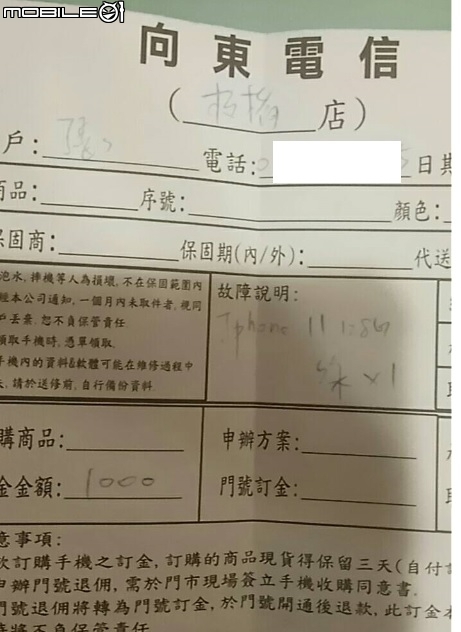 MOBILE01
向東電信
(板橋店)
戶: 張
電話: 日期
商品: 序號: 顏色:
保固商: 保固期(內/外): 代送
泡水, 摔機等人為損壞, 不在保固範圍內
經本公司通知, 一個月內未取件者, 視同
戶丟棄, 恕不負保管責任.
領取手機時, 憑單領取.
手機內的資料&軟體可能在維修過程中
失, 請於送修前, 自行備份資料.
故障說明:
Iphone 11 128G
綠 x1
購商品:
申辦方案:
金金額: 1000
門號訂金:
意事項:
次訂購手機之訂金, 訂購的商品現貨得保留三天(自付訂
申辦門號退佣, 需於門市現場簽立手機收購同意書.
門號退佣將轉為門號訂金, 於門號開通後退款, 此訂金本
時將不負保管責任